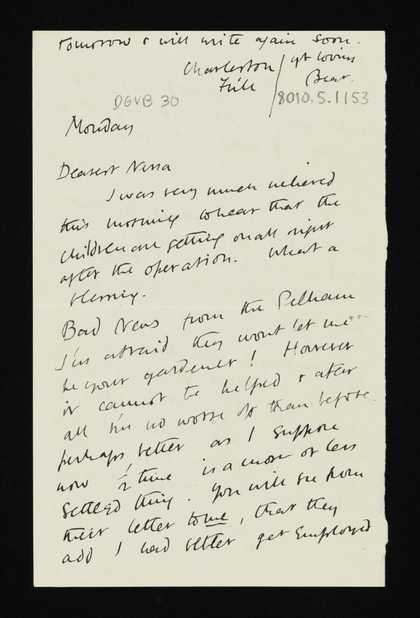 tomorrow & will write again soon.
Charleston / yr loving
Firle Bear.
DGVB 30 8010.5.1153
Monday
Dearest Nessa
I was very much relieved
this morning to hear that the
children are getting on all right
after the operation. What a
blessing.
Bad News from the Pelham
I'm afraid they wont let me
be your gardener! However
it cannot be helped & after
all I'm no worse off than before.
perhaps better as I suppose
now ½ time is a more or less
settled thing. You will see from
their letter to me, that they
add I had better get employed